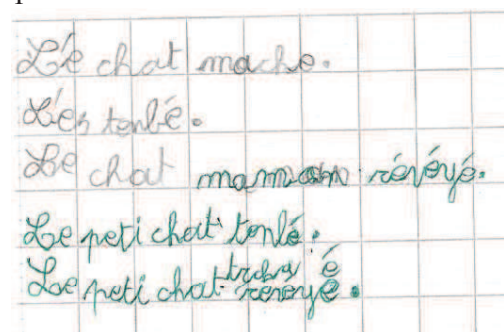 Lé chat mache.
Lés tenbé.
Le chat maman révéyé.
Le peti chat tonbé.
Le peti chat révéyé.